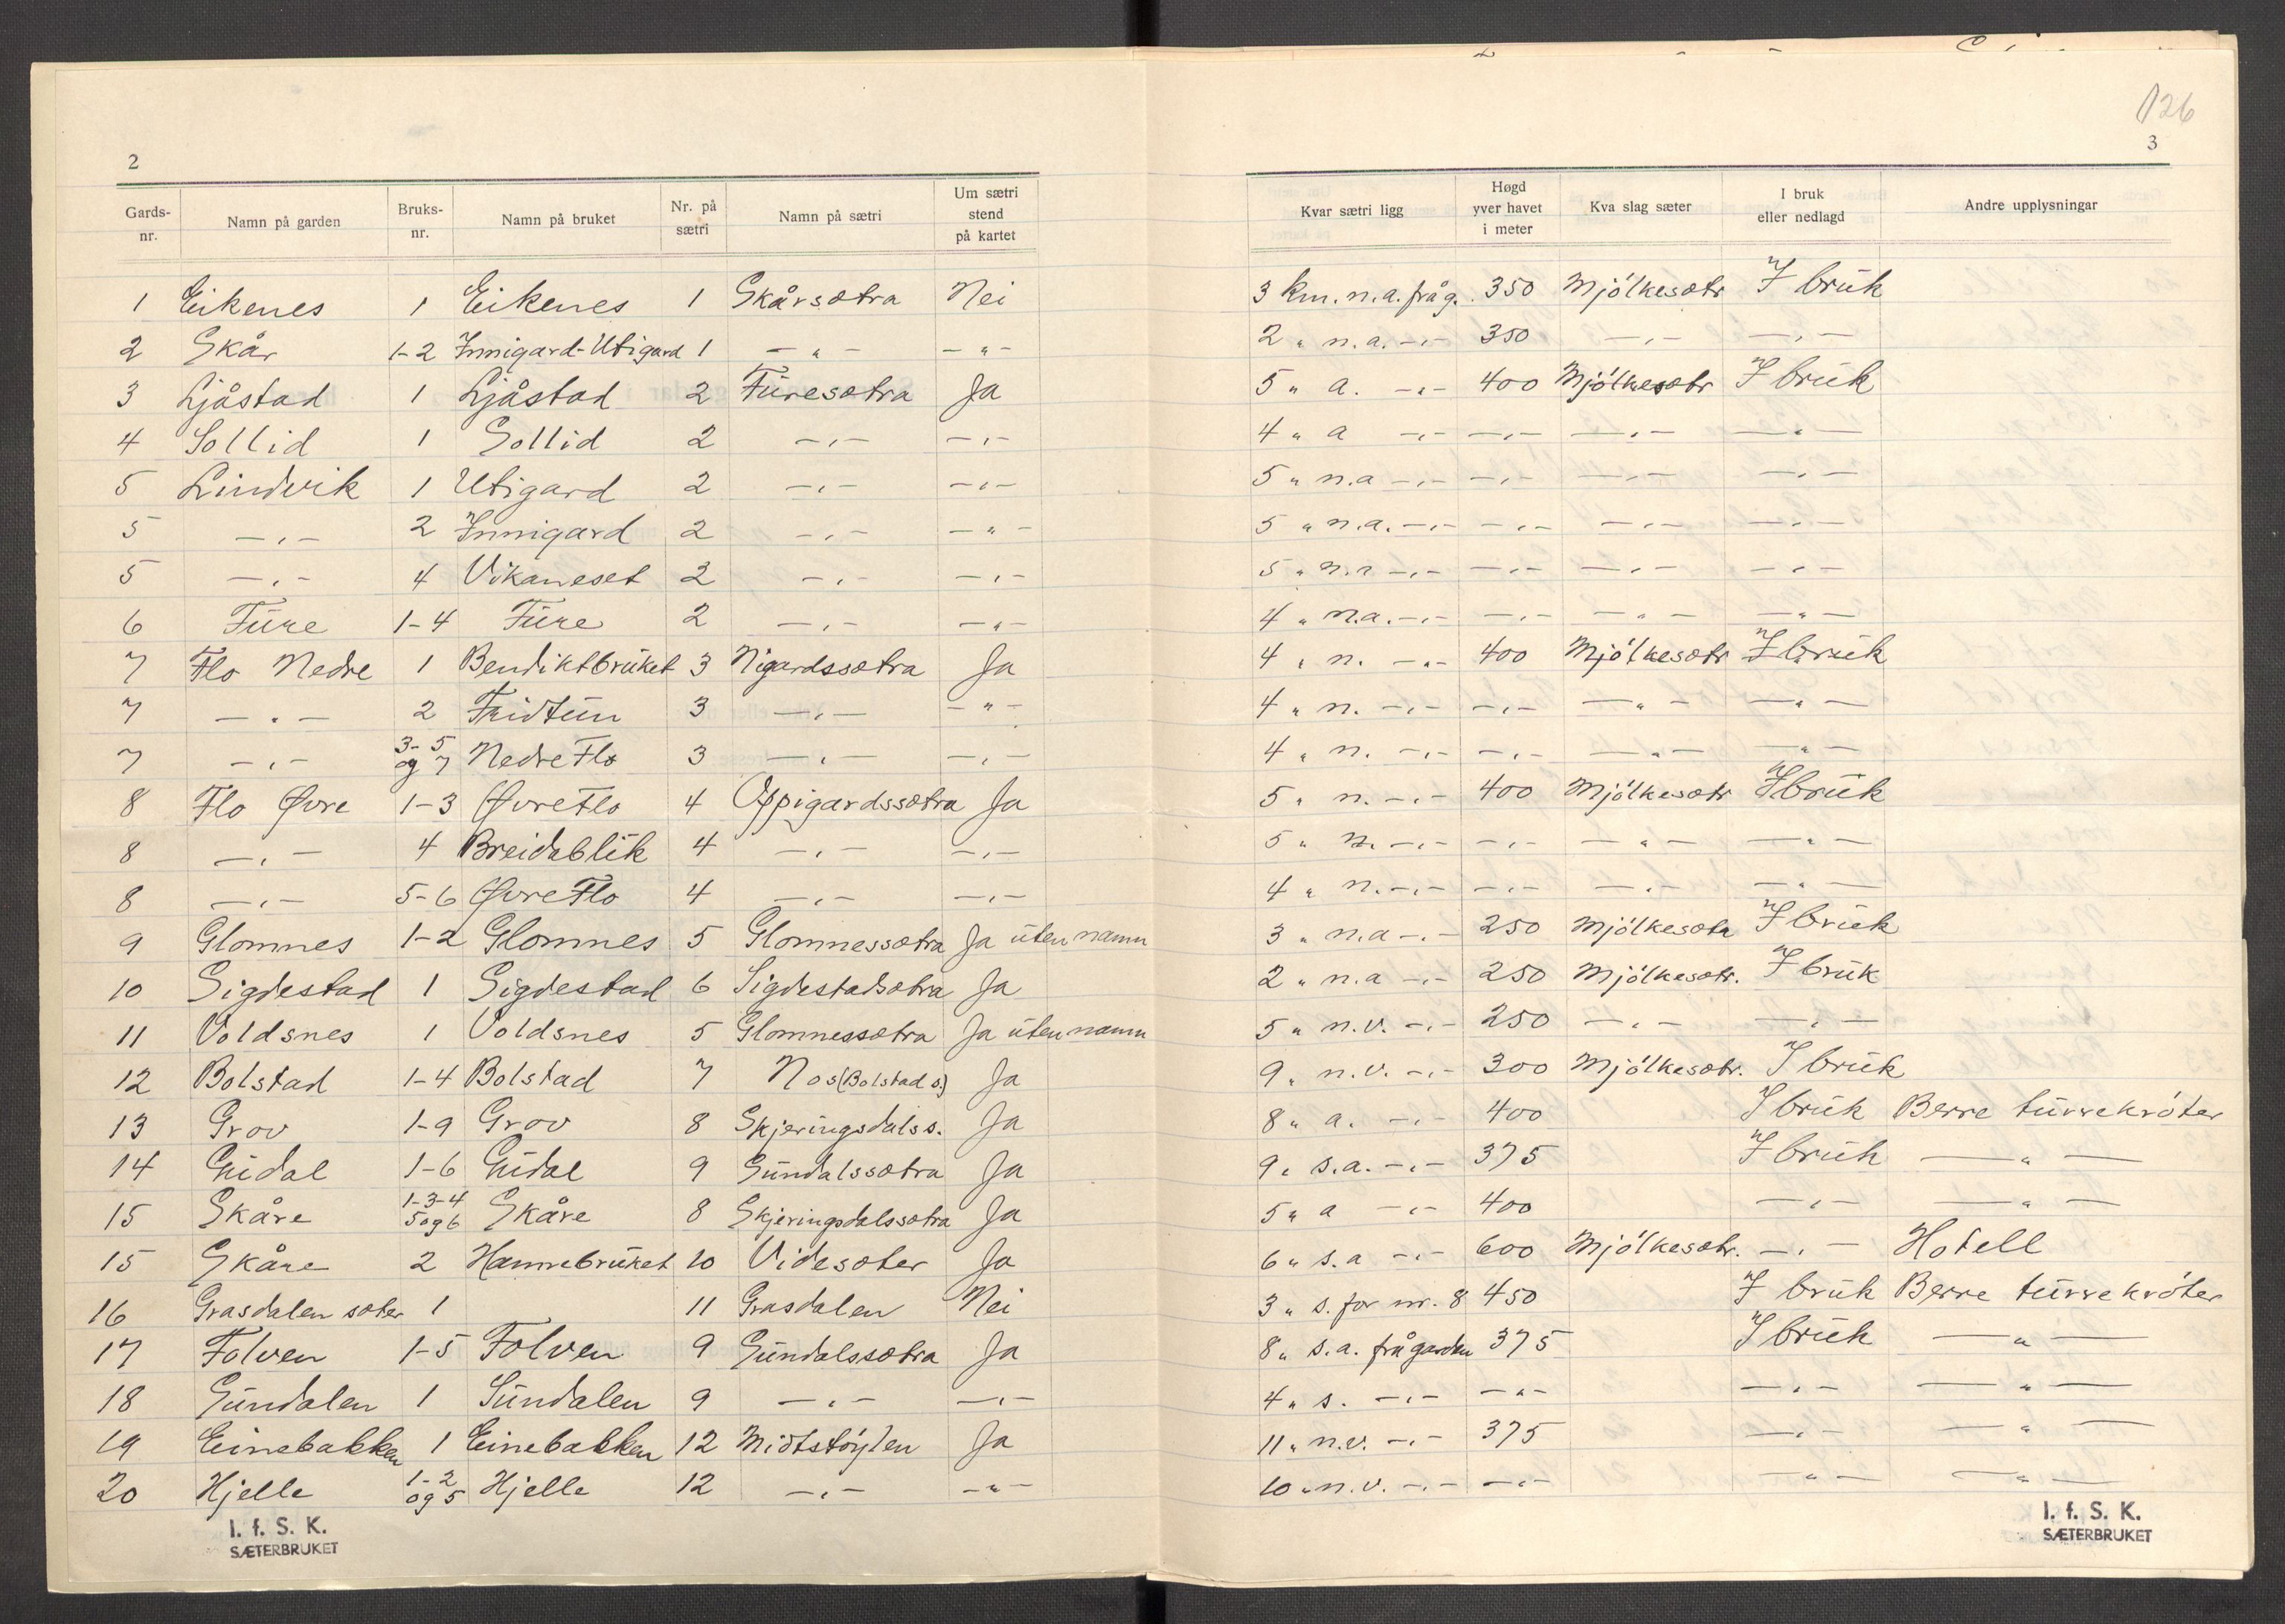 126
2
3
Gards-nr. Namn på garden Bruks-nr. Namn på bruket Nr. på sætri Namn på sætri Um sætri stend på kartet Kvar sætri ligg Høgd yver havet i meter Kva slag sæter I bruk eller nedlagd Andre upplysningar
1 Eikenes 1 Eikenes 1 Skårsætra Nei 3 km. n.a. frå g. 350 Mjölkesætr I bruk
2 Skår 1-2 Innigard-Utigard 1 -"- -"- 2 " n.a. -"- 350 -"- -"-
3 Ljåstad 1 Ljåstad 2 Furesætra Ja 5 " a. -"- 400 Mjölkesætr I bruk
4 Sollid 1 Sollid 2 -"- -"- 4 " a -"- -"- -"- -"-
5 Lindvik 1 Utigard 2 -"- -"- 5 " n.a -"- -"- -"- -"-
5 -"- 2 Innigard 2 -"- -"- 5 " n.a. -"- -"- -"- -"-
5 -"- 4 Vikaneset 2 -"- -"- 5 " n.a -"- -"- -"- -"-
6 Fure 1-4 Fure 2 -"- -"- 4 " n.a. -"- -"- -"- -"-
7 Flo Nedre 1 Bendiktbruket 3 Nigardssætra Ja 4 " n. -"- 400 Mjölkesætr I bruk
7 -"- 2 Fridtun 3 -"- -"- 4 " n. -"- -"- -"- -"-
7 -"- 3-5 og 7 Nedre Flo 3 -"- -"- 4 " n. -"- -"- -"- -"-
8 Flo Øvre 1-3 Øvre Flo 4 Oppigardssætra Ja 5 " n. -"- 400 Mjölkesætr I bruk
8 -"- 4 Breidablik 4 -"- -"- 5 " n. -"- -"- -"- -"-
8 -"- 5-6 Øvre Flo 4 -"- -"- 4 " n. -"- -"- -"- -"-
9 Glomnes 1-2 Glomnes 5 Glomnessætra Ja uten namn 3 " n.a -"- 250 Mjölkesætr I bruk
10 Sigdestad 1 Sigdestad 6 Sigdestadsætra Ja 2 " n.a -"- 250 Mjölkesætr. I bruk
11 Voldsnes 1 Voldsnes 5 Glomnessætra Ja uten namn 5 " n.v. -"- 250 -"- -"-
12 Bolstad 1-4 Bolstad 7 Nos (Bolstad s.) Ja 9 " n.v. -"- 300 Mjölkesætr. I bruk
13 Grov 1-9 Grov 8 Skjeringsdals s. Ja 8 " a. -"- 400 I bruk Berre turrekröter
14 Guidal 1-6 Guidal 9 Sundalssætra Ja 9 " s.a. -"- 375 I bruk -"-
15 Skåre 1-3-4 5 og 6 Skåre 8 Skjeringsdalssætra Ja 5 " a -"- 400 -"- -"-
15 Skåre 2 Hannebruket 10 Videsæter Ja 6 " s.a -"- 600 Mjölkesætr. -"- Hotell
16 Grasdalen sæter 1 11 Grasdalen Nei 3 " s. for nr. 8 450 I bruk Berre turrekröter
17 Folven 1-5 Folven 9 Sundalssætra Ja 8 " s.a. frå garden 375 I bruk -"-
18 Sundalen 1 Sundalen 9 -"- -"- 4 " s. -"- -"- -"- -"-
19 Einebakken 1 Einebakken 12 Midtstöylen Ja 11 " n.v. -"- 375 -"- -"-
20 Hjelle 1-2 og 5 Hjelle 12 -"- -"- 10 " n.v. -"- -"- -"- -"-
I. f. S. K.
SÆTERBRUKET
I. f. S. K.
SÆTERBRUKET